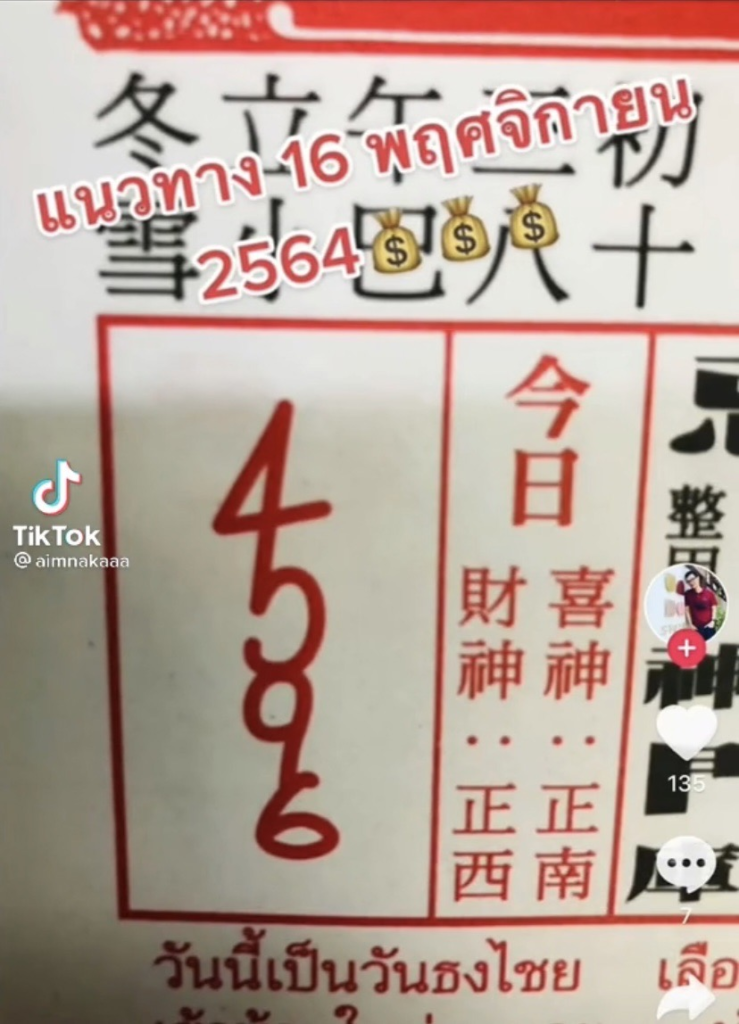 冬立午三初
แนวทาง 16 พฤศจิกายน
2564
雪小巳八十
今日
喜神：正南
財神：正西
4
5
9
6
整
神
TikTok
@aimnakaaa
135
7
วันนี้เป็นวันธงไชย